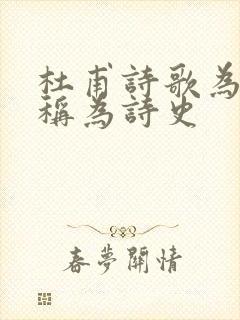 杜甫詩歌為
稱為詩史
春夢關情